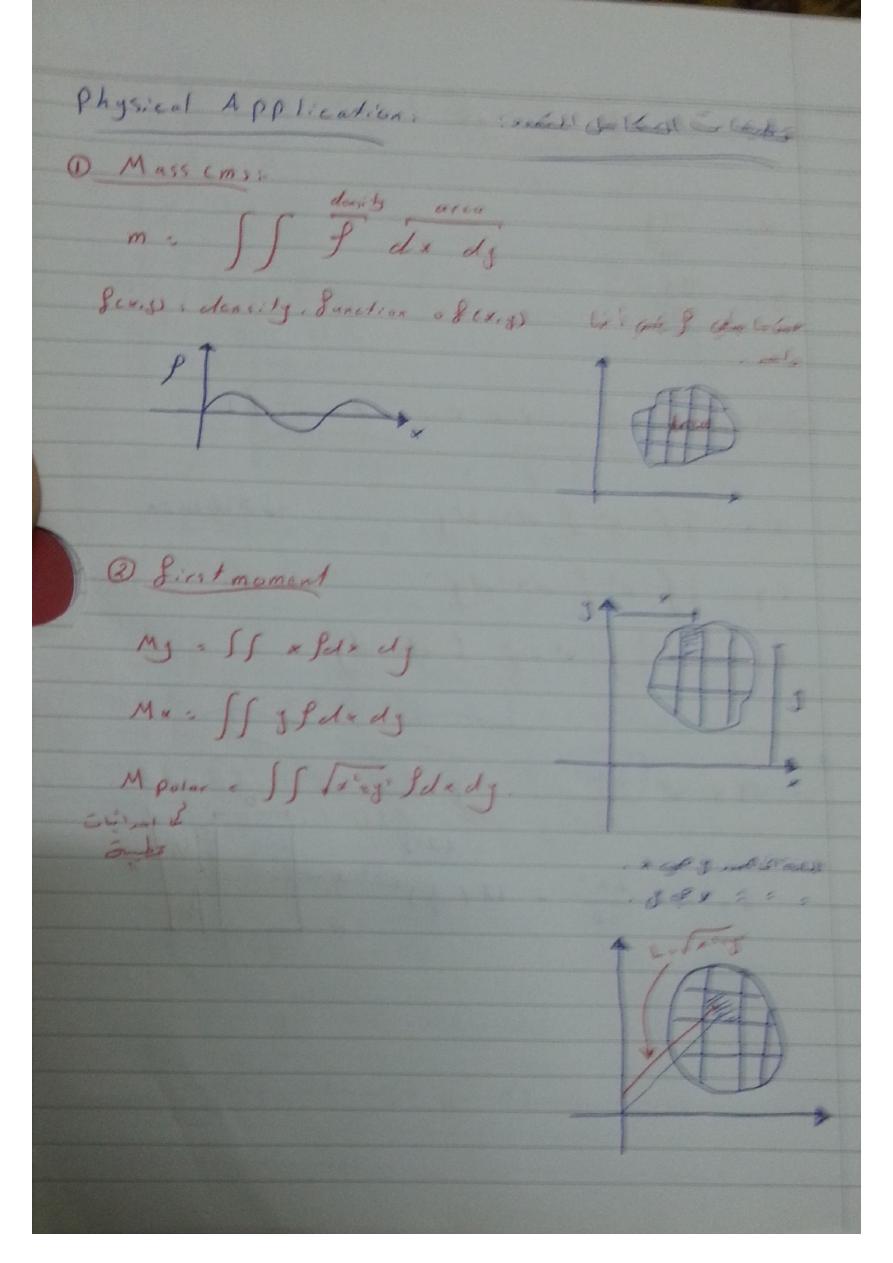 Physical Application: تطبيقات التكامل المتعدد:
① Mass (m):
density area
m = ∫∫ ρ dx dy
ρ(x,y) : density, function of (x,y)
ρ
x
Area
② first moment
y x
My = ∫∫ x ρ dx dy
Mx = ∫∫ y ρ dx dy
y
M polar = ∫∫ √x²+y² ρ dx dy
x
احداثيات
قطبية